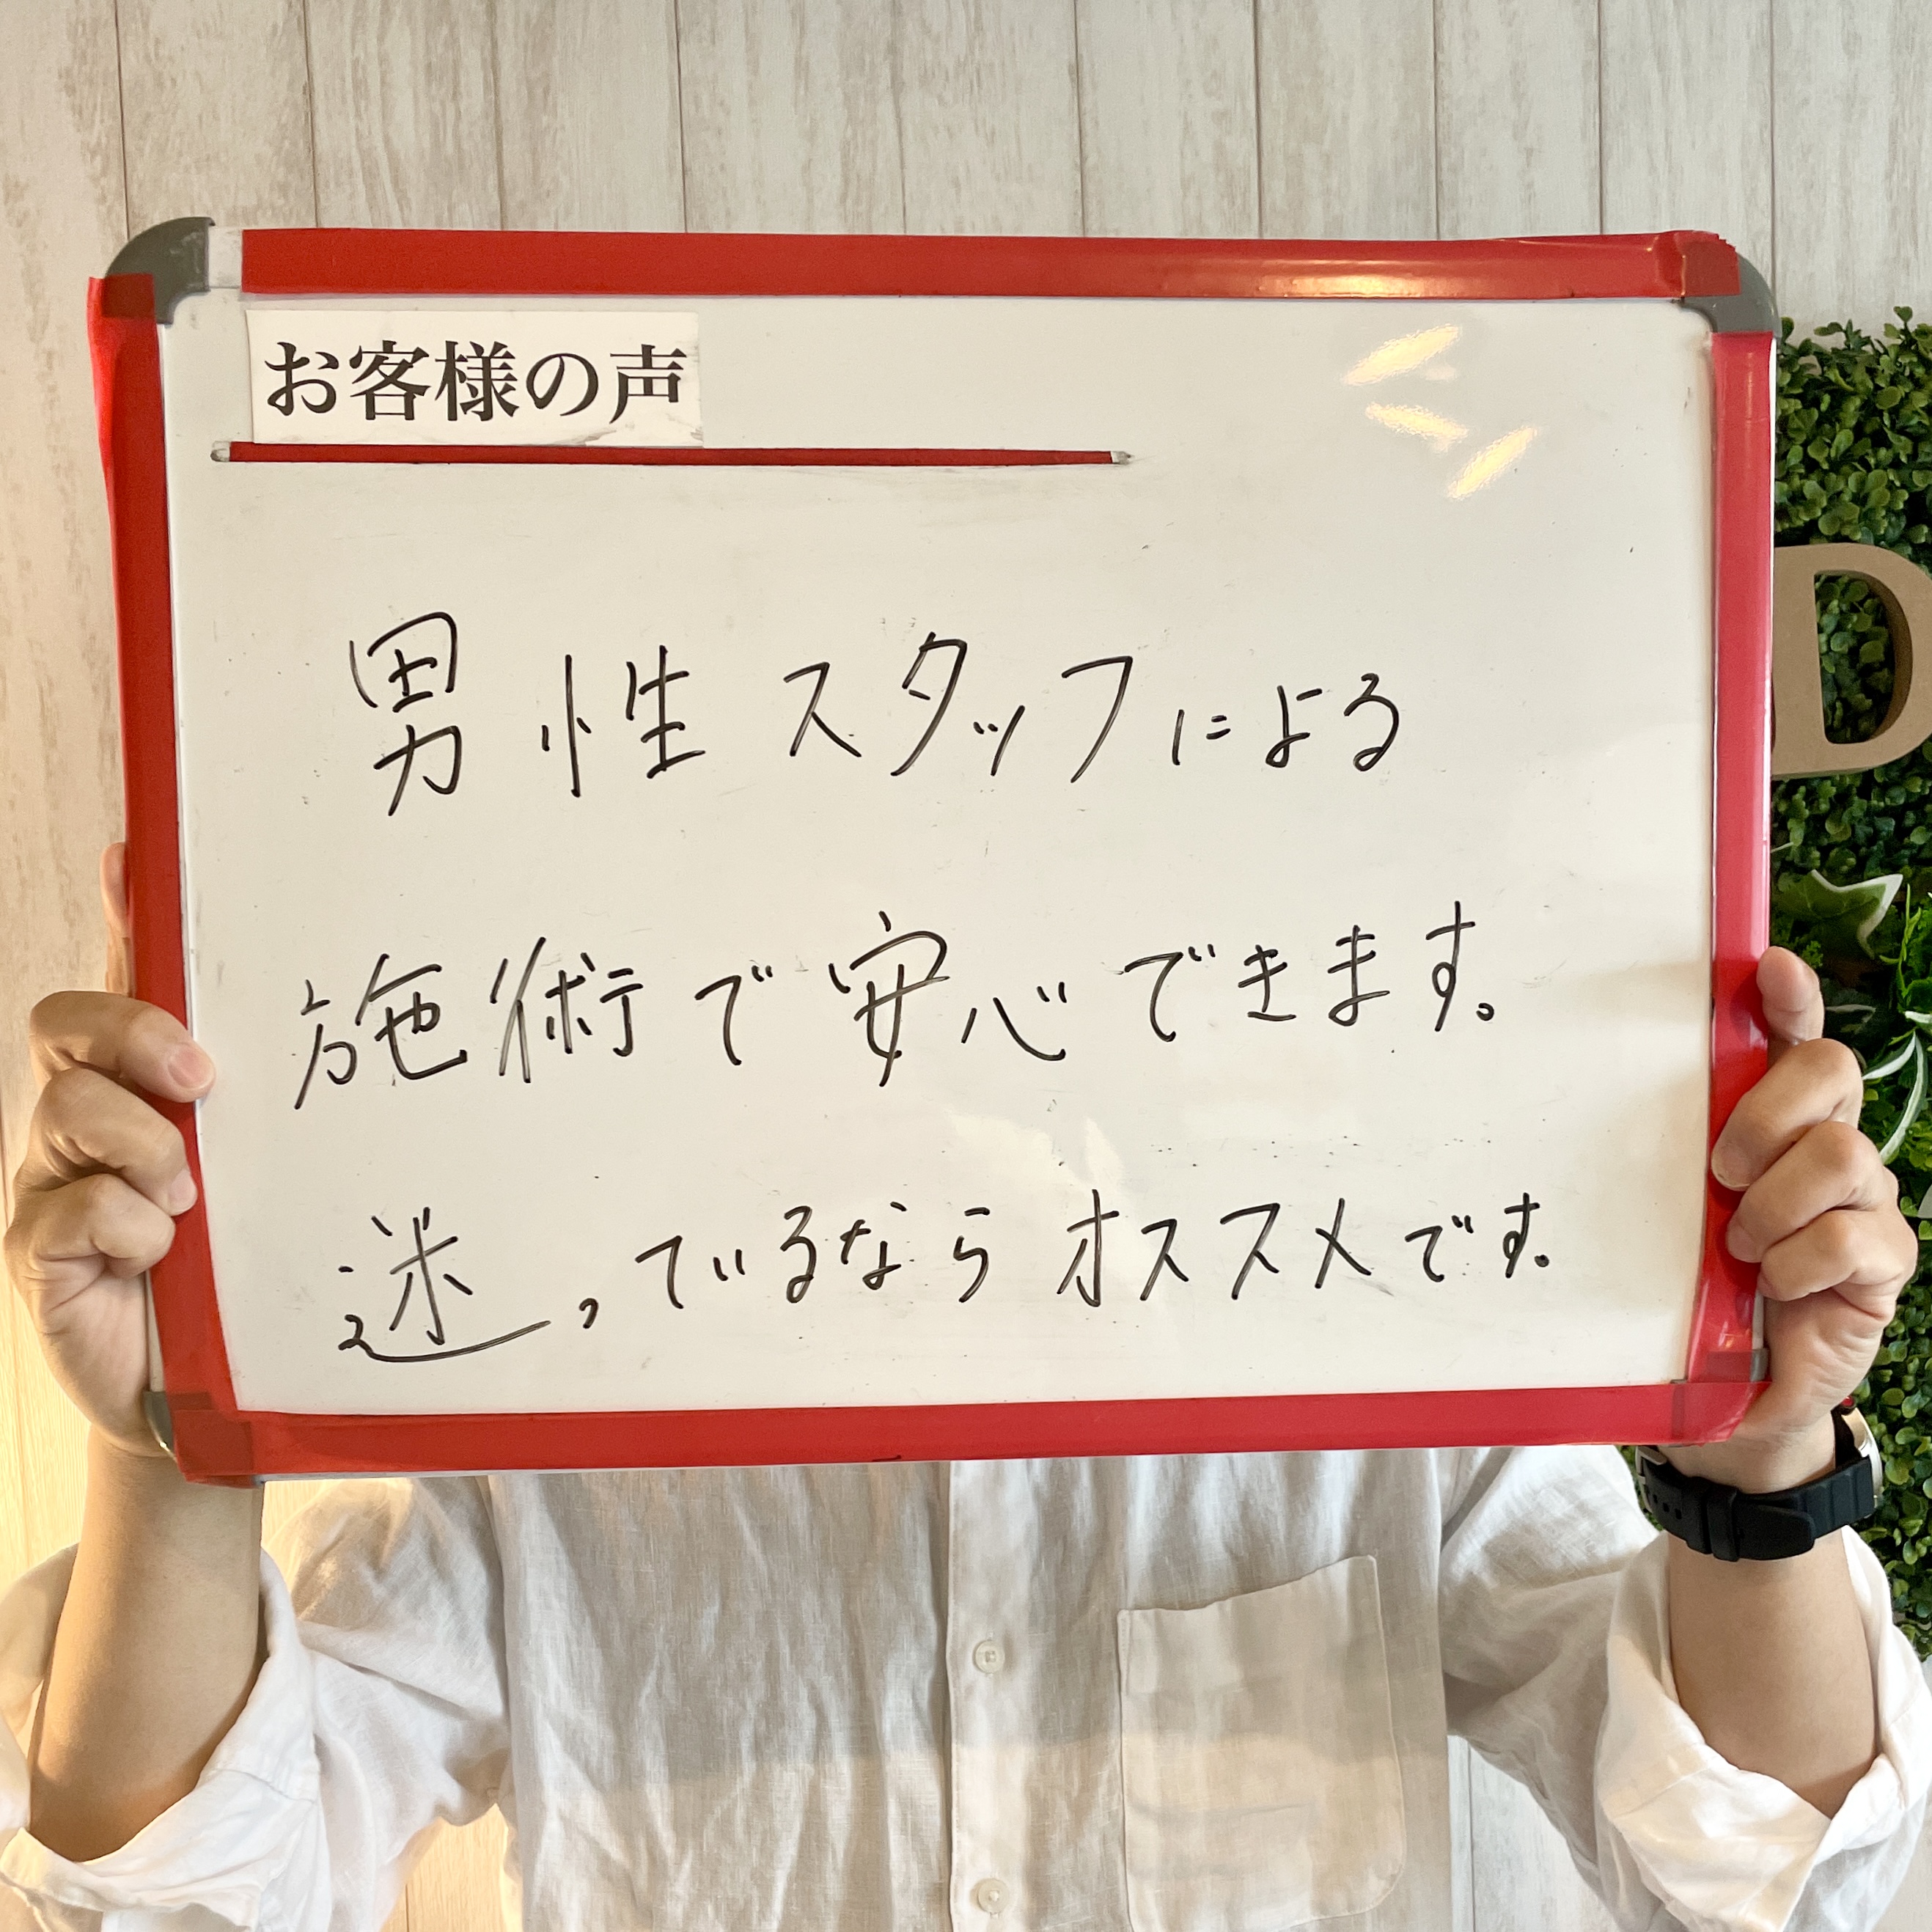 お客様の声
男性スタッフによる
施術で安心できます。
迷っているならオススメです。
D